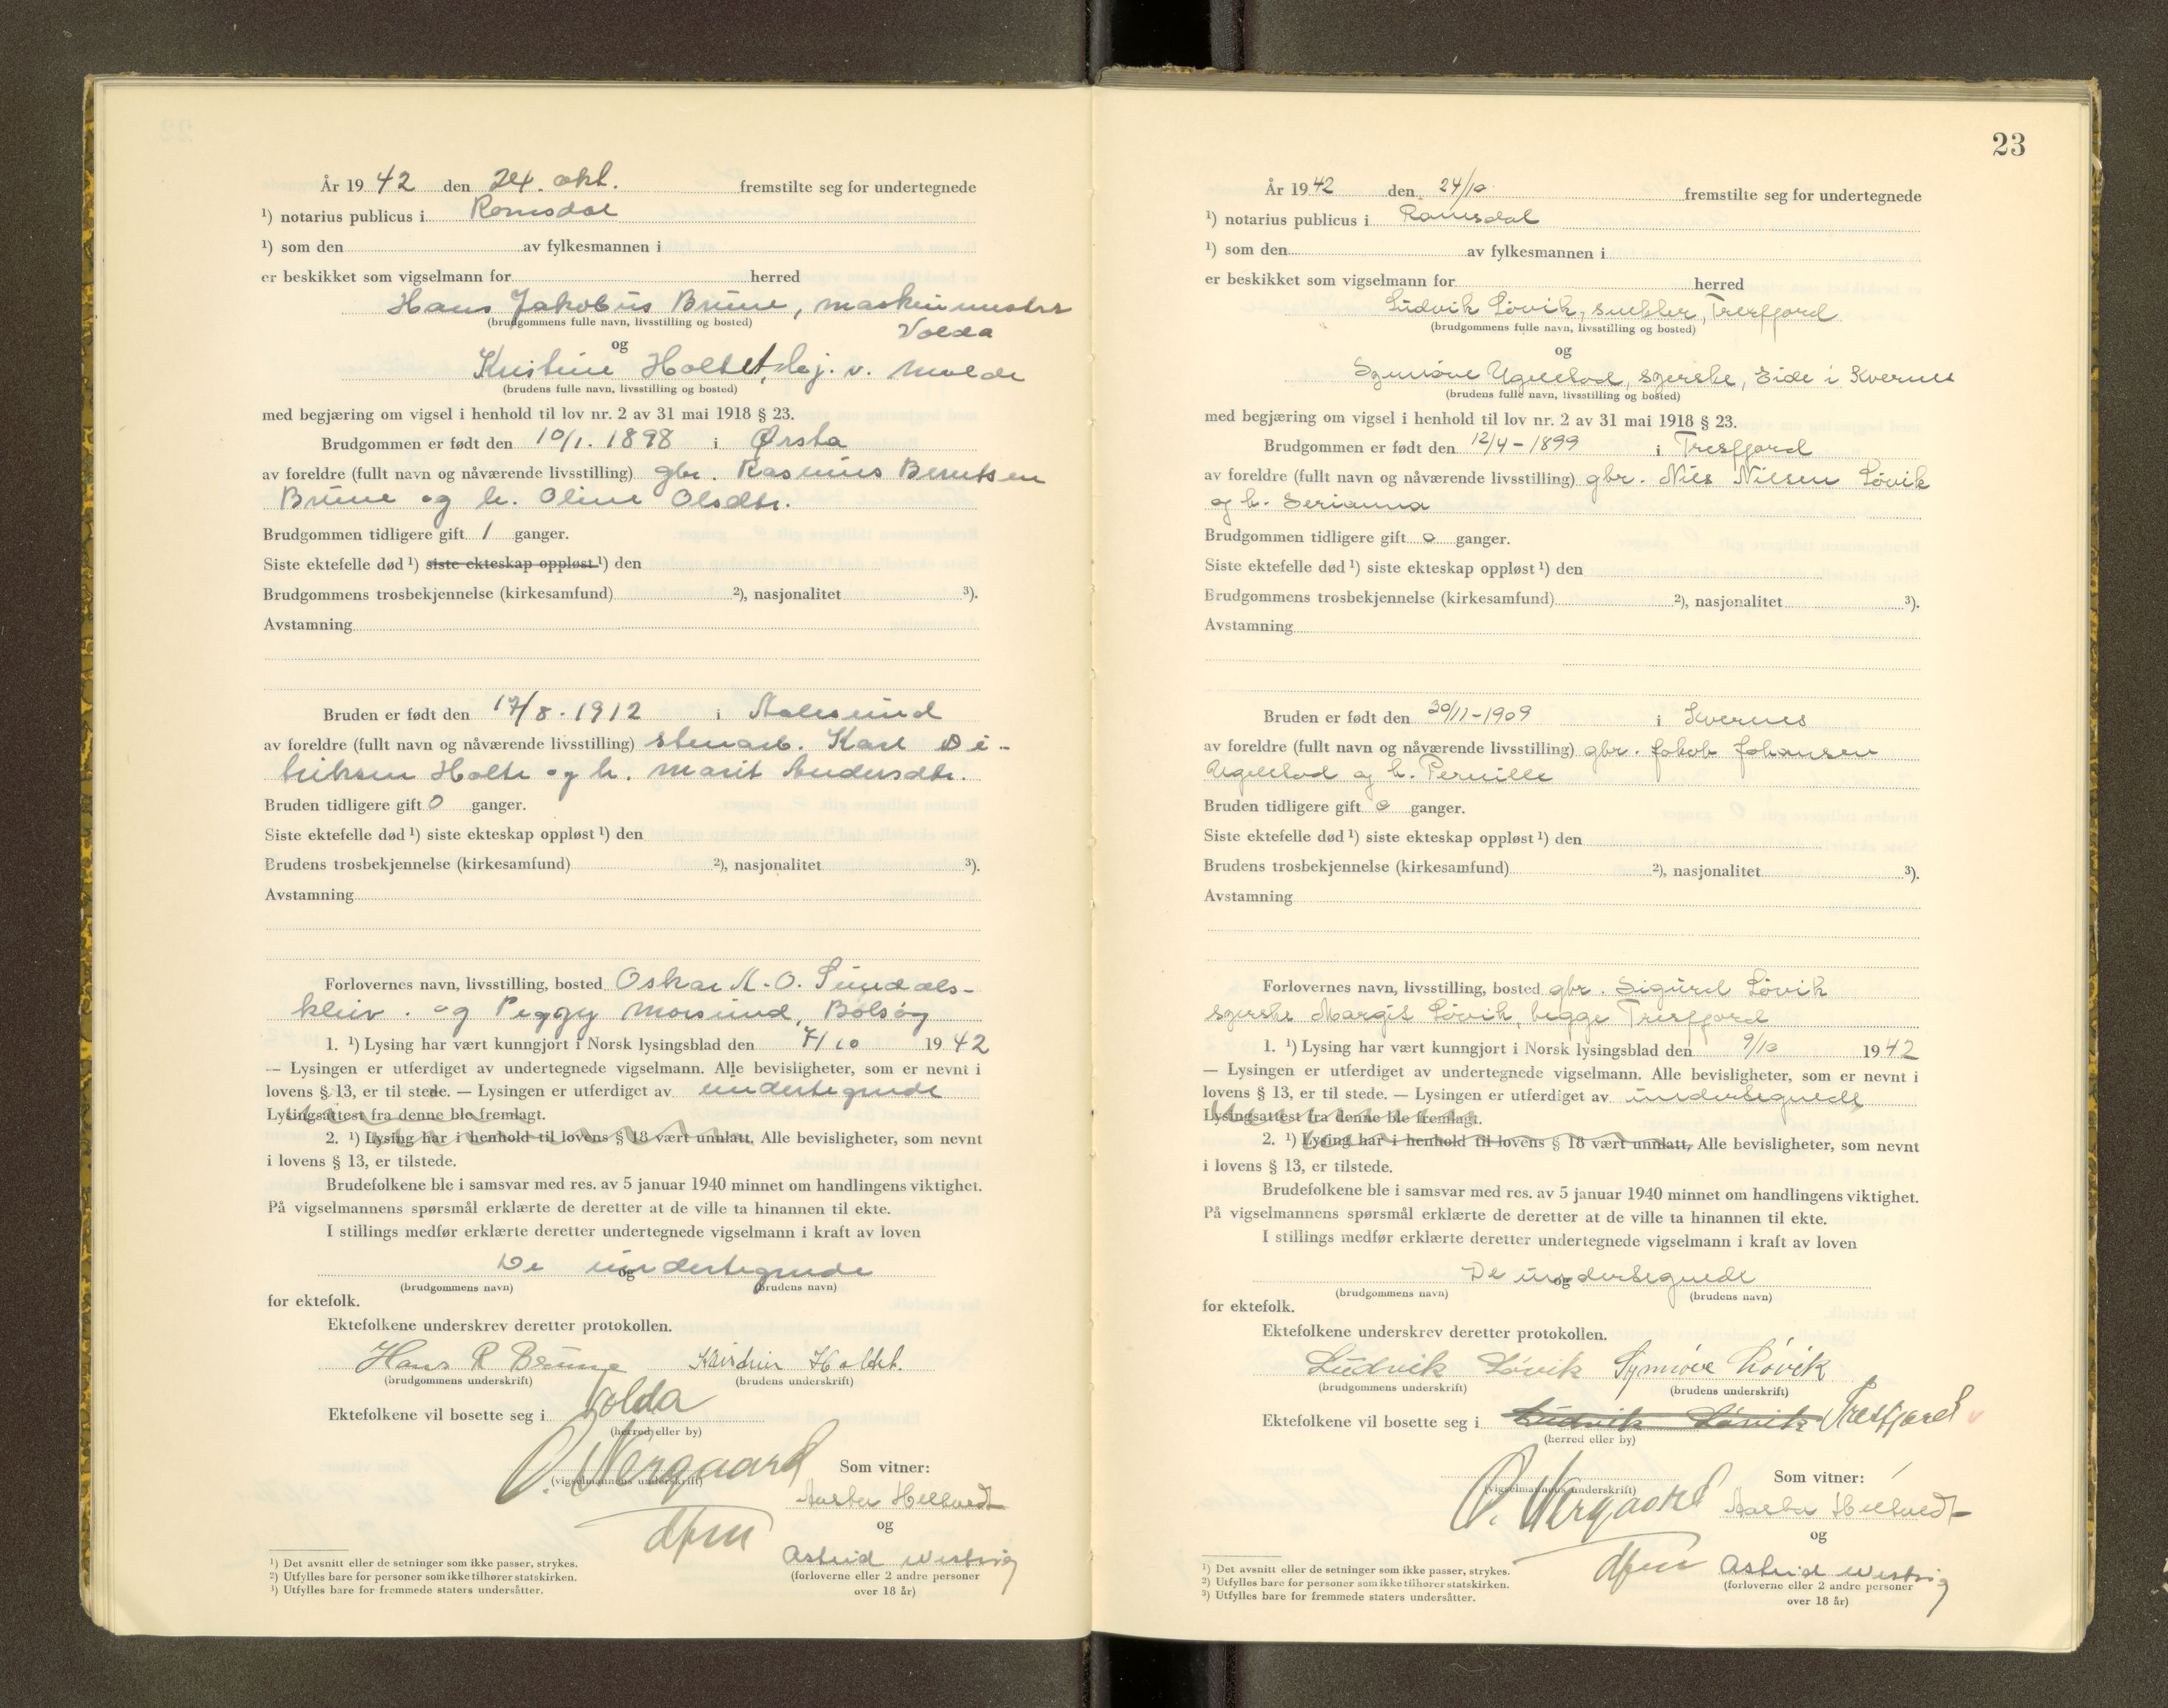 År 19 42 den 24. okt. fremstilte seg for undertegnede
¹) notarius publicus i Romsdal
¹) som den av fylkesmannen i
er beskikket som vigselmann for herred
Hans Jakobus Brune, maskinmester
(brudgommens fulle navn, livsstilling og bosted)
Volda
og
Kristine Holtet, hj. v. Molde
(brudens fulle navn, livsstilling og bosted)
med begjæring om vigsel i henhold til lov nr. 2 av 31 mai 1918 § 23.
Brudgommen er født den 10/1. 1898 i Ørsta
av foreldre (fullt navn og nåværende livsstilling) gbr. Rasmus Berntsen
Brune og h. Oline Olsdtr.
Brudgommen tidligere gift 1 ganger.
Siste ektefelle død ¹) siste ekteskap oppløst ¹) den
Brudgommens trosbekjennelse (kirkesamfund) ²), nasjonalitet ³).
Avstamning
Bruden er født den 17/8 - 1912 i Aalesund
av foreldre (fullt navn og nåværende livsstilling) stenarb. Karl Di-
driksen Holte og h. Marit Andersdtr.
Bruden tidligere gift 0 ganger.
Siste ektefelle død ¹) siste ekteskap oppløst ¹) den
Brudens trosbekjennelse (kirkesamfund) ²), nasjonalitet ³).
Avstamning
Forlovernes navn, livsstilling, bosted Oskar A. O. Sundals-
kleiv . og Peggy Morsund, Bolsøy
1. ¹) Lysing har vært kunngjort i Norsk lysingsblad den 7/10 19 42
— Lysingen er utferdiget av undertegnede vigselmann. Alle bevisligheter, som er nevnt i
lovens § 13, er til stede. — Lysingen er utferdiget av undertegnede
Lysingsattest fra denne ble fremlagt.
2. ¹) Lysing har i henhold til lovens § 18 vært unnlatt. Alle bevisligheter, som nevnt
i lovens § 13, er tilstede.
Brudefolkene ble i samsvar med res. av 5 januar 1940 minnet om handlingens viktighet.
På vigselmannens spørsmål erklærte de deretter at de ville ta hinannen til ekte.
I stillings medfør erklærte deretter undertegnede vigselmann i kraft av loven
De undertegnede
og
(brudgommens navn) (brudens navn)
for ektefolk.
Ektefolkene underskrev deretter protokollen.
Hans R Brune Kristine Holtet.
(brudgommens underskrift) (brudens underskrift)
Ektefolkene vil bosette seg i Volda
(herred eller by)
O. Nergaard
(vigselmannens underskrift) Som vitner:
dfm
og
Astrid Westvig
(forloverne eller 2 andre personer
over 18 år)
¹) Det avsnitt eller de setninger som ikke passer, strykes.
²) Utfylles bare for personer som ikke tilhører statskirken.
³) Utfylles bare for fremmede staters undersåtter.
23
År 19 42 den 24/10 fremstilte seg for undertegnede
¹) notarius publicus i Romsdal
¹) som den av fylkesmannen i
er beskikket som vigselmann for herred
Ludvik Løvik, snekker, Tresfjord
(brudgommens fulle navn, livsstilling og bosted)
og
Synnøve Ugelstad, syerske, Eide i Kvernes
(brudens fulle navn, livsstilling og bosted)
med begjæring om vigsel i henhold til lov nr. 2 av 31 mai 1918 § 23.
Brudgommen er født den 12/4 - 1899 i Tresfjord
av foreldre (fullt navn og nåværende livsstilling) gbr. Nils Nilsen Løvik
og h. Serianna
Brudgommen tidligere gift 0 ganger.
Siste ektefelle død ¹) siste ekteskap oppløst ¹) den
Brudgommens trosbekjennelse (kirkesamfund) ²), nasjonalitet ³).
Avstamning
Bruden er født den 30/11 - 1909 i Kvernes
av foreldre (fullt navn og nåværende livsstilling) gbr. Jakob Johansen
Ugelstad og h. Pernille
Bruden tidligere gift 0 ganger.
Siste ektefelle død ¹) siste ekteskap oppløst ¹) den
Brudens trosbekjennelse (kirkesamfund) ²), nasjonalitet ³).
Avstamning
Forlovernes navn, livsstilling, bosted gbr. Sigurd Løvik
syerske Margit Løvik, begge Tresfjord
1. ¹) Lysing har vært kunngjort i Norsk lysingsblad den 9/10 19 42
— Lysingen er utferdiget av undertegnede vigselmann. Alle bevisligheter, som er nevnt i
lovens § 13, er til stede. — Lysingen er utferdiget av undertegnede
Lysingsattest fra denne ble fremlagt.
2. ¹) Lysing har i henhold til lovens § 18 vært unnlatt, Alle bevisligheter, som nevnt
i lovens § 13, er tilstede.
Brudefolkene ble i samsvar med res. av 5 januar 1940 minnet om handlingens viktighet.
På vigselmannens spørsmål erklærte de deretter at de ville ta hinannen til ekte.
I stillings medfør erklærte deretter undertegnede vigselmann i kraft av loven
De undertegnede
og
(brudgommens navn) (brudens navn)
for ektefolk.
Ektefolkene underskrev deretter protokollen.
Ludvik Løvik Synnøve Løvik
(brudgommens underskrift) (brudens underskrift)
Ektefolkene vil bosette seg i Ludvik Løvik Tresfjord
(herred eller by)
O. Nergaard
(vigselmannens underskrift) Som vitner:
dfm
og
Astrid Westvig
(forloverne eller 2 andre personer
over 18 år)
¹) Det avsnitt eller de setninger som ikke passer, strykes.
²) Utfylles bare for personer som ikke tilhører statskirken.
³) Utfylles bare for fremmede staters undersåtter.